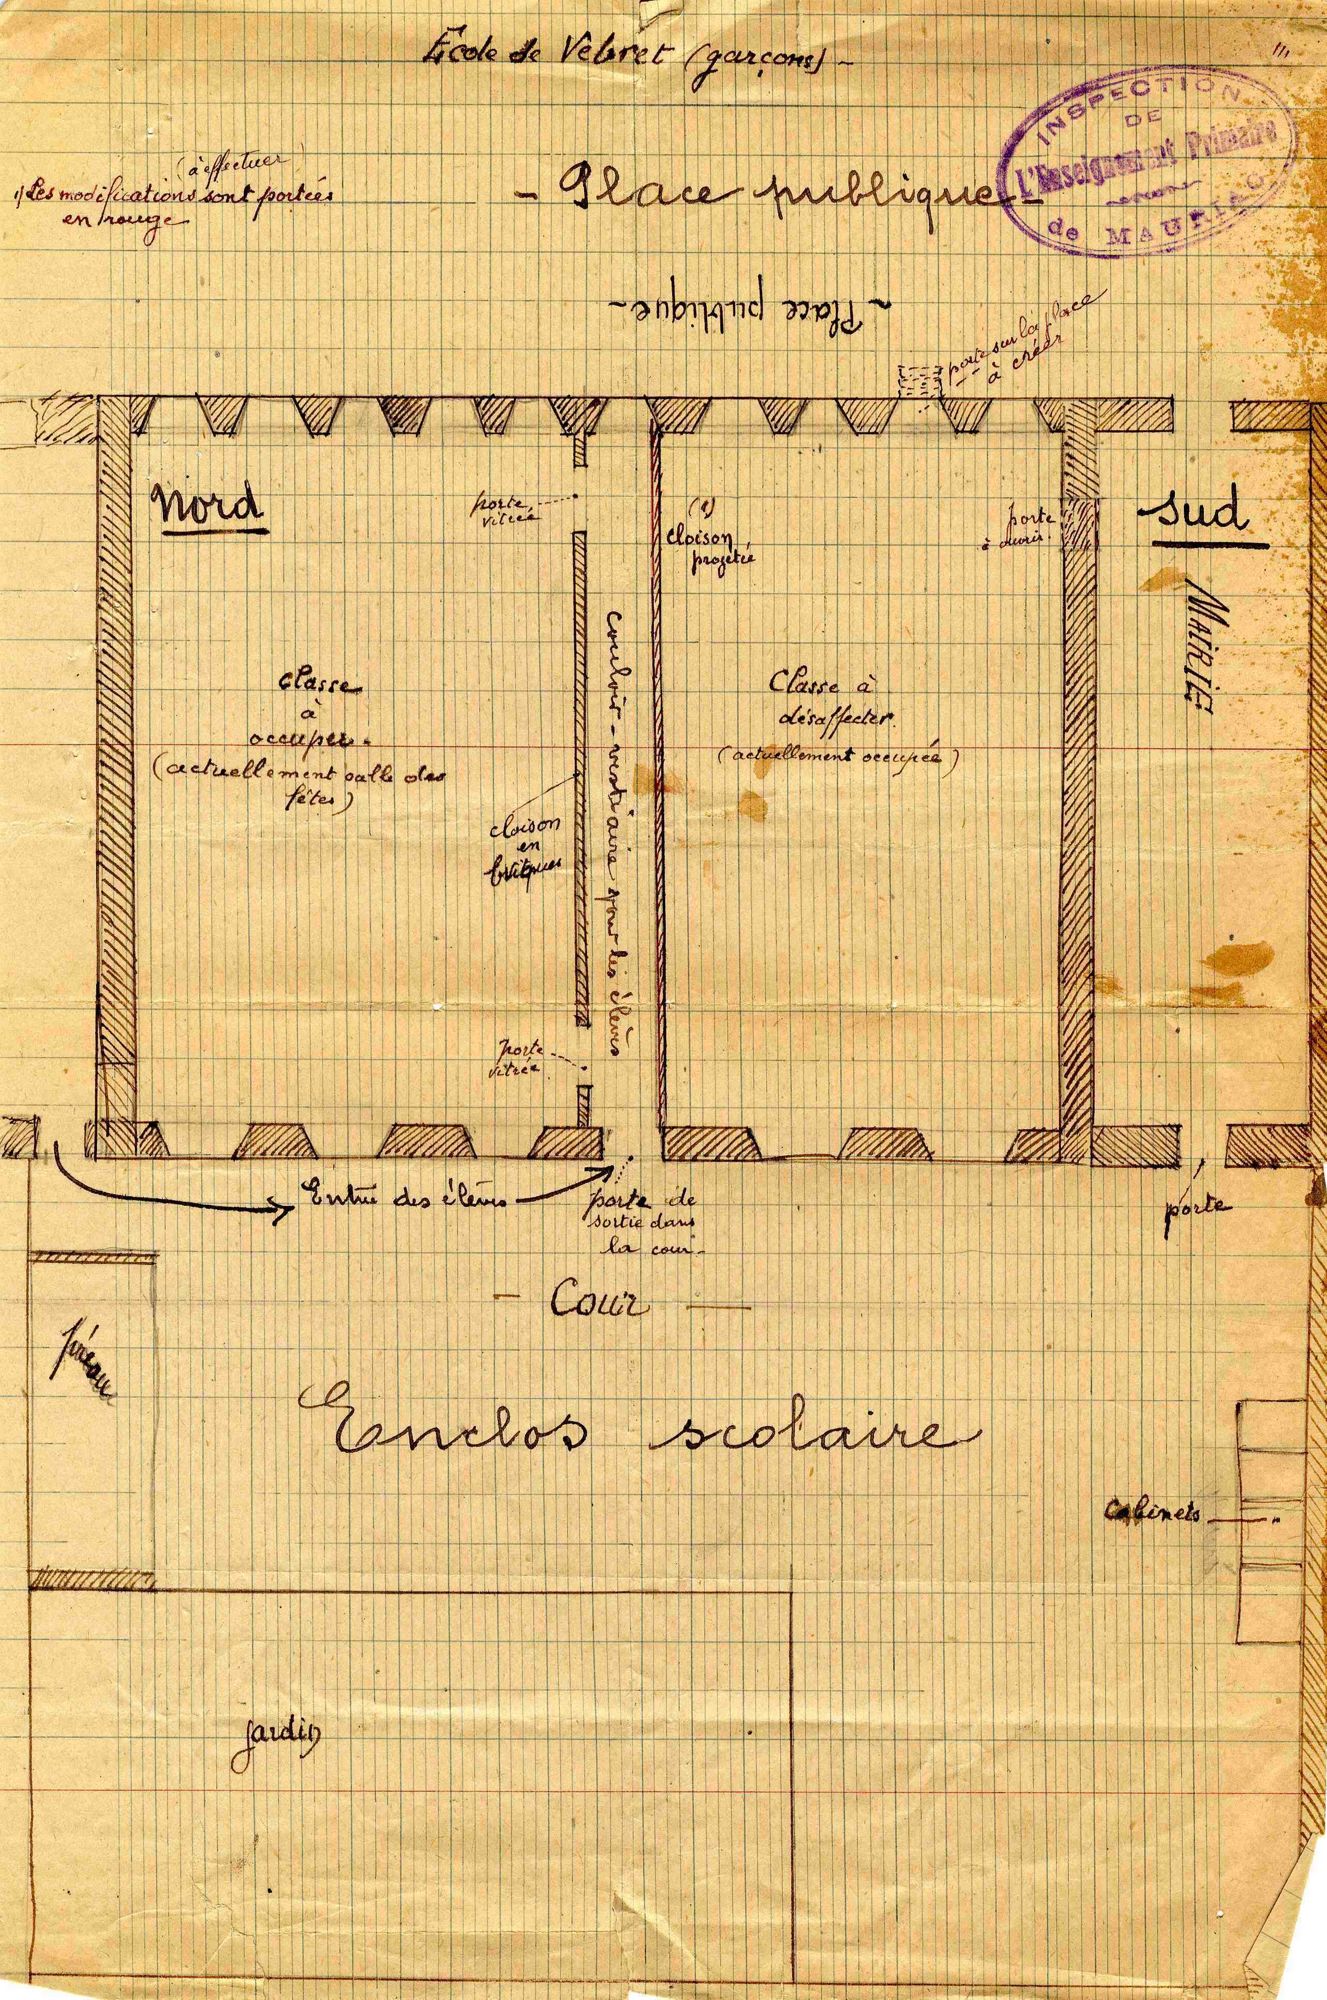 École de Vebret (garçons) -
INSPECTION
DE
L'Enseignement Primaire
de MAURIAC
(à effectuer)
1) Les modifications sont portées
en rouge
- Place publique -
~ Place publique ~
porte sur la place
à créer
Nord
porte
vitrée
(1)
cloison
projetée
porte
à ouvrir.
Sud
MAIRIE
Classe
à
occuper.
(actuellement salle des
fêtes)
couloir - vestiaire pour les élèves
Classe à
désaffecter.
(actuellement occupée)
cloison
en
briques
porte
vitrée
Entrée des élèves
porte de
sortie dans
la cour -
porte
- Cour -
préau
Enclos scolaire
Cabinets
jardin